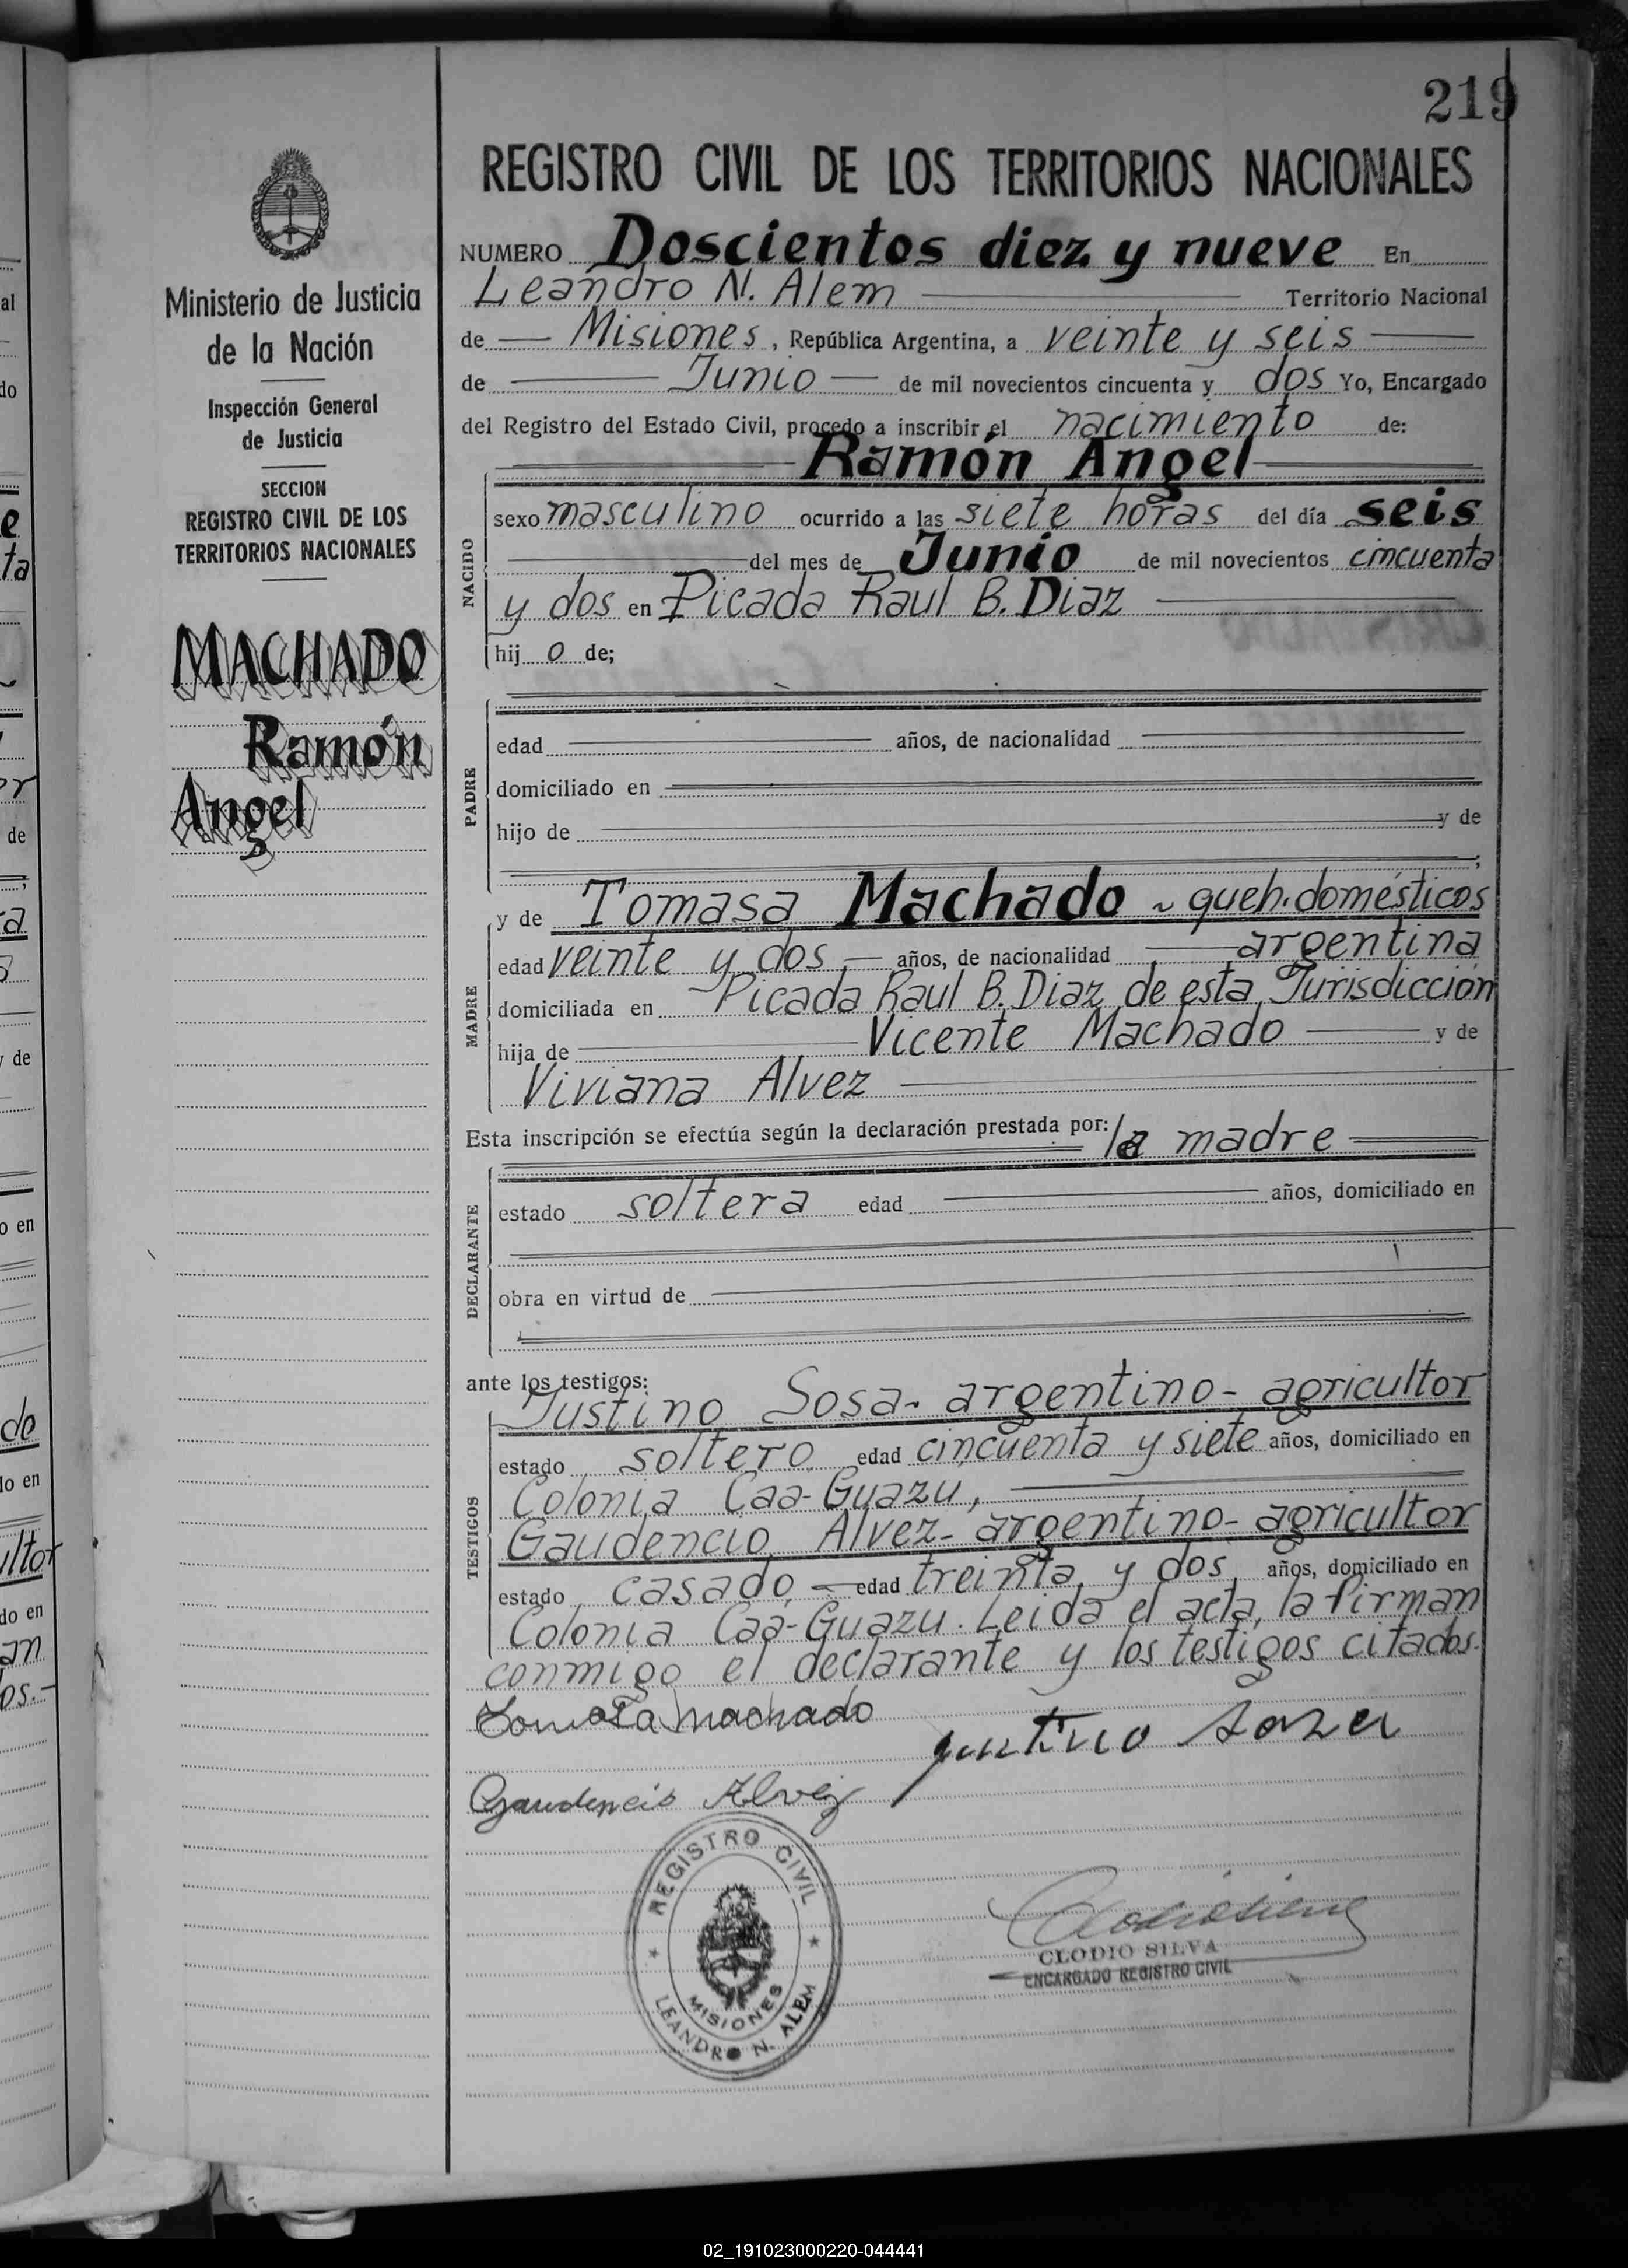 219
REGISTRO CIVIL DE LOS TERRITORIOS NACIONALES
Ministerio de Justicia
de la Nación
Inspección General
de Justicia
SECCION
REGISTRO CIVIL DE LOS
TERRITORIOS NACIONALES
MACHADO
Ramón
Angel
NUMERO Doscientos diez y nueve En
Leandro N. Alem Territorio Nacional
de Misiones, República Argentina, a veinte y seis
de Junio de mil novecientos cincuenta y dos Yo, Encargado
del Registro del Estado Civil, procedo a inscribir el nacimiento de:
Ramón Angel
NACIDO
sexo masculino ocurrido a las siete horas del día seis
del mes de Junio de mil novecientos cincuenta
y dos en Picada Raul B. Diaz
hij o de;
PADRE
edad años, de nacionalidad
domiciliado en
hijo de y de
;
MADRE
y de Tomasa Machado ~ queh. domésticos
edad veinte y dos años, de nacionalidad argentina
domiciliada en Picada Raul B. Diaz de esta Jurisdicción
hija de Vicente Machado y de
Viviana Alvez
Esta inscripción se efectúa según la declaración prestada por: la madre
DECLARANTE
estado soltera edad años, domiciliado en
obra en virtud de
ante los testigos:
TESTIGOS
Justino Sosa- argentino- agricultor
estado soltero edad cincuenta y siete años, domiciliado en
Colonia Caa-Guazu,
Gaudencio Alvez- argentino- agricultor
estado casado edad treinta y dos años, domiciliado en
Colonia Caa-Guazu. Leida el acta, la firman
conmigo el declarante y los testigos citados.
Tomasa machado
justino Soza
Gaudencio Alvez
REGISTRO CIVIL
MISIONES
LEANDRO N. ALEM
CLODIO SILVA
ENCARGADO REGISTRO CIVIL
02_191023000220-044441